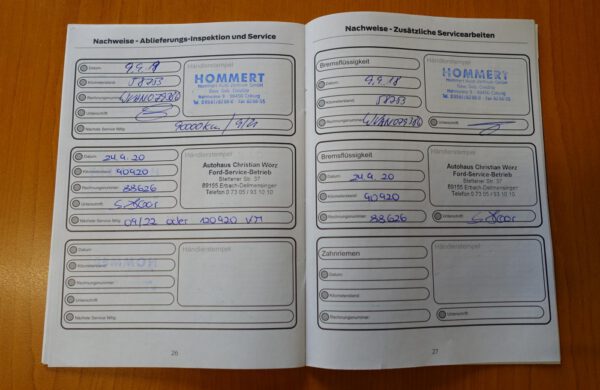 Nachweise - Ablieferungs-Inspektion und Service
Datum 9.9.18
Kilometerstand 58253
Rechnungsnummer
Unterschrift
Nächste Service fällig
Händlerstempel
HOMMERT
Hommert Auto Zentrum GmbH
96450 Coburg
Datum 24.4.20
Kilometerstand 90420
Rechnungsnummer 88626
Unterschrift
Nächste Service fällig 04/22 oder 120420 km
Händlerstempel
Autohaus Christian Wörz
Ford-Service-Betrieb
Stetterer Str. 37
89155 Erbach-Dellmensingen
Telefon 0 73 05 / 93 10 10
Datum
Kilometerstand
Rechnungsnummer
Unterschrift
Nächste Service fällig
Händlerstempel
26
Nachweise - Zusätzliche Servicearbeiten
Bremsflüssigkeit
Datum 9.9.18
Kilometerstand 58253
Rechnungsnummer
Händlerstempel
HOMMERT
Hommert Auto Zentrum GmbH
96450 Coburg
Unterschrift
Bremsflüssigkeit
Datum 24.4.20
Kilometerstand 90420
Rechnungsnummer 88626
Händlerstempel
Autohaus Christian Wörz
Ford-Service-Betrieb
Stetterer Str. 37
89155 Erbach-Dellmensingen
Telefon 0 73 05 / 93 10 10
Unterschrift
Zahnriemen
Datum
Kilometerstand
Rechnungsnummer
Händlerstempel
Unterschrift
27